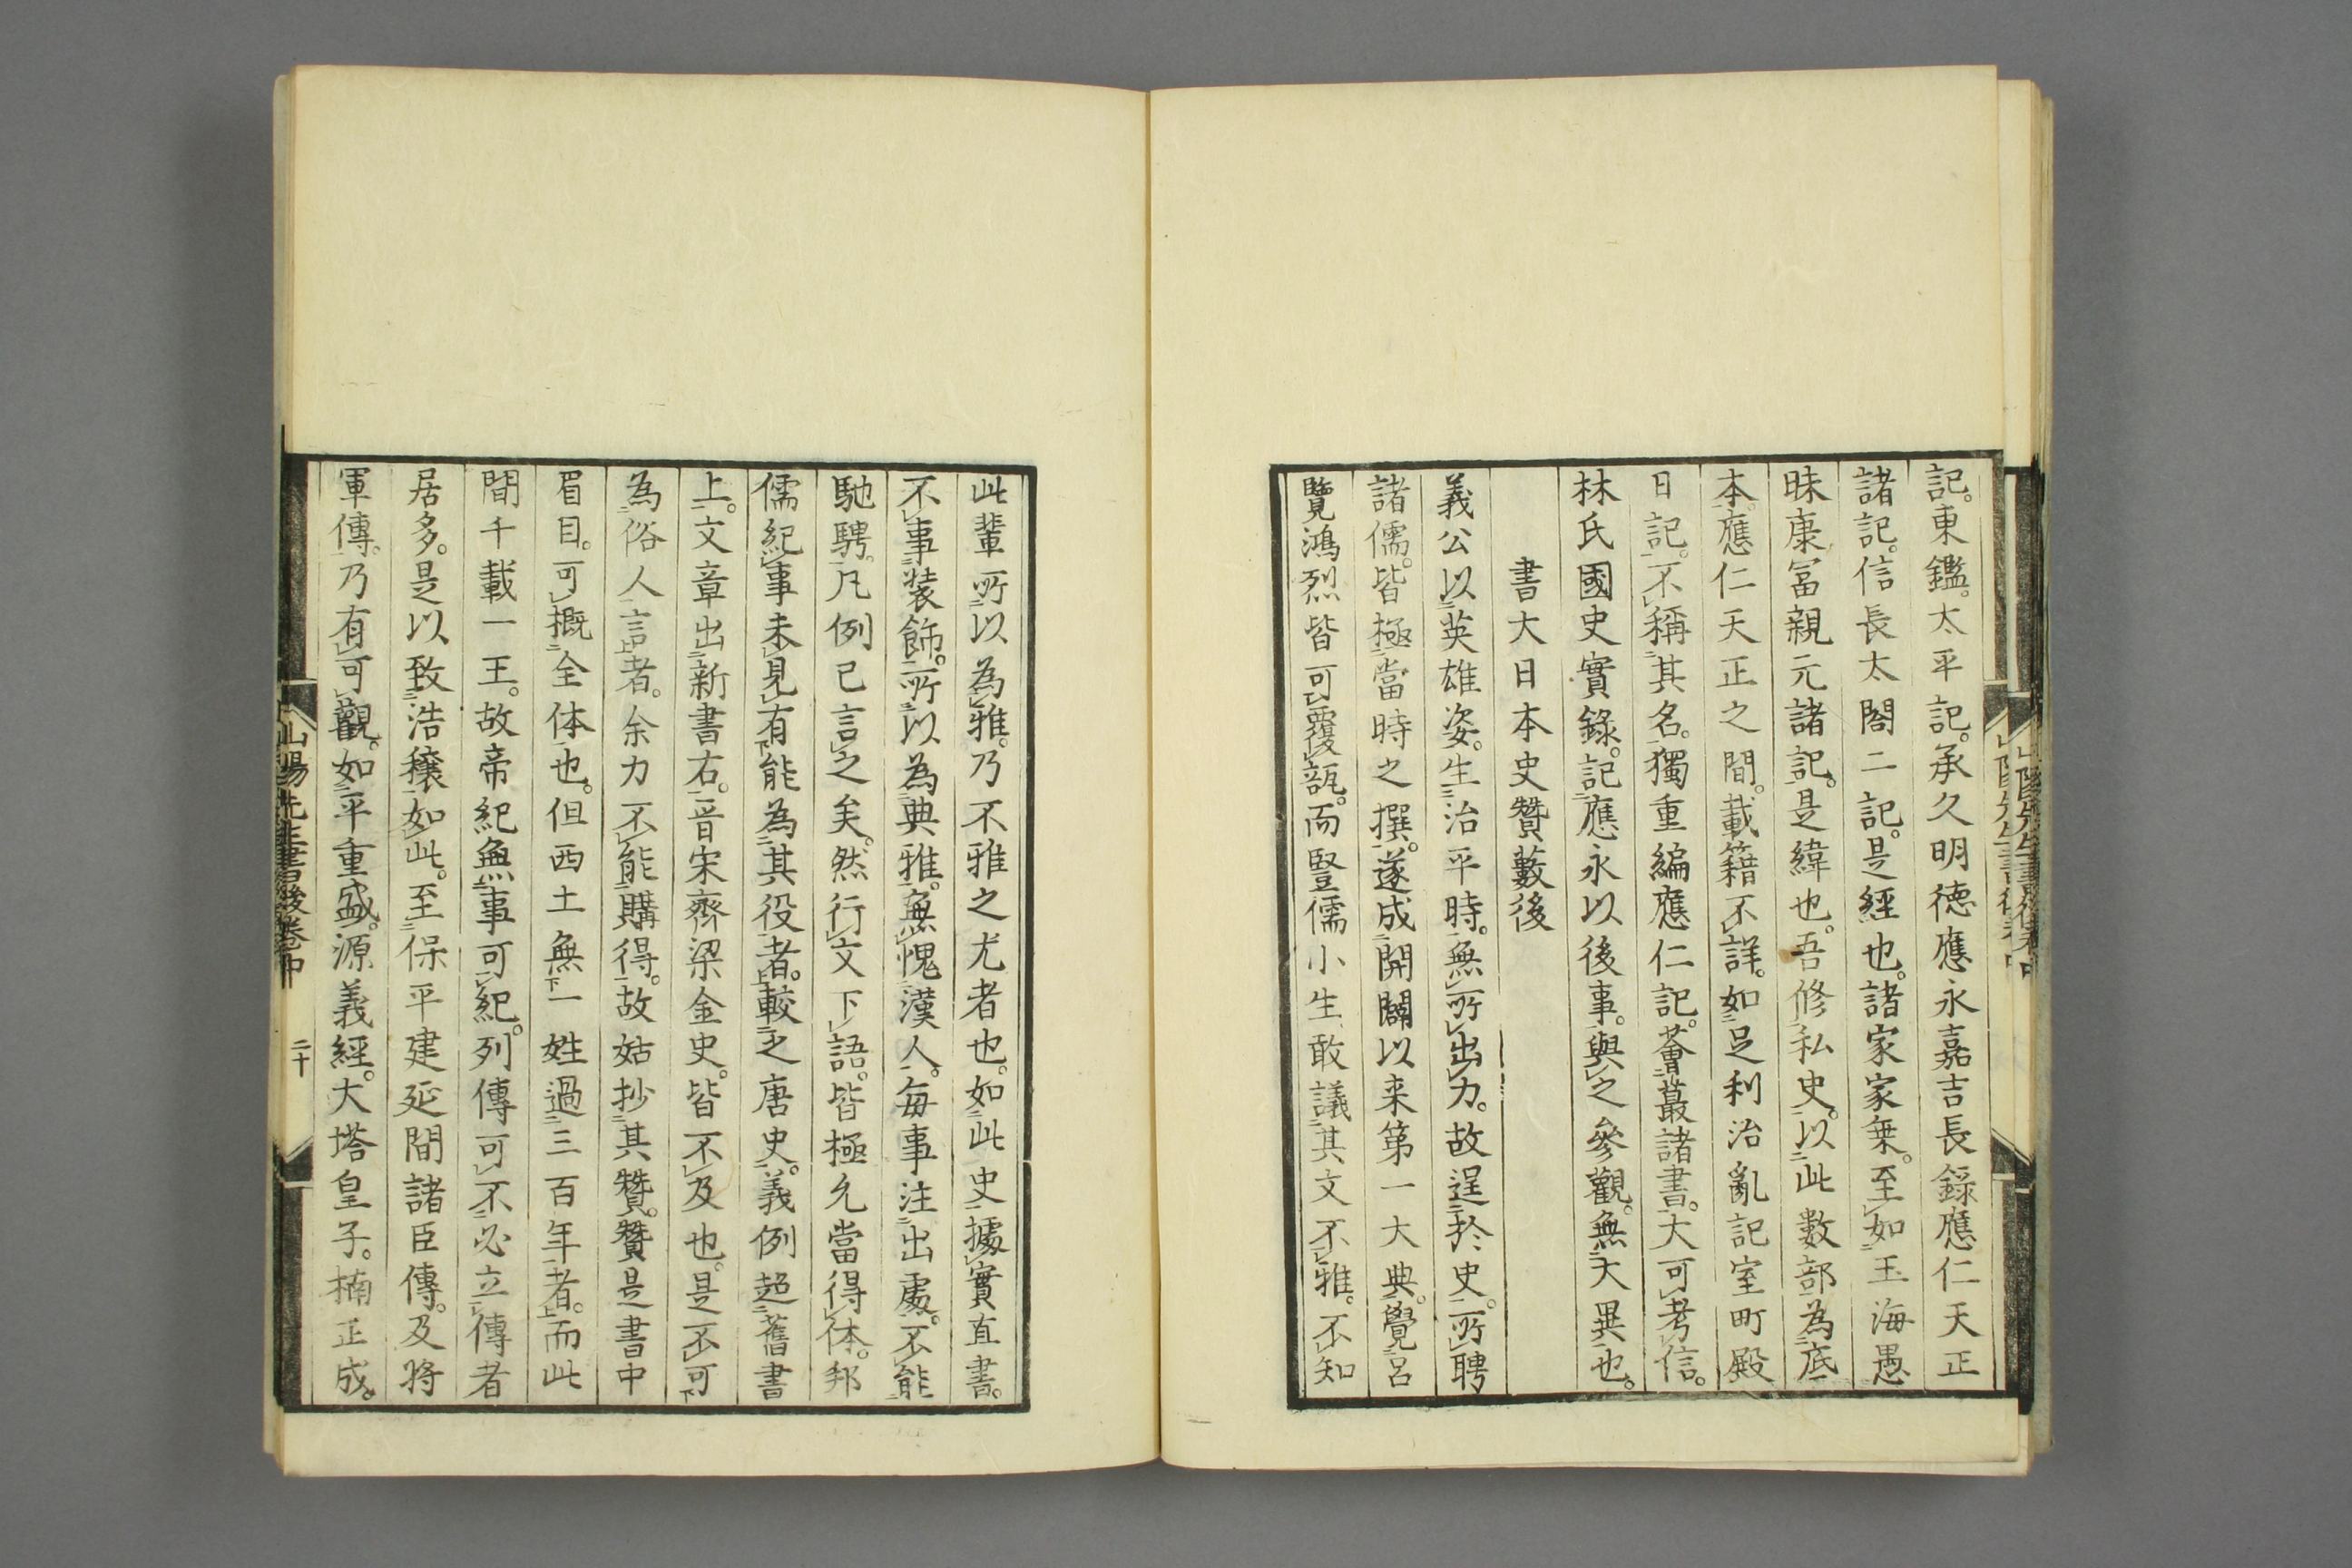 記。東鑑。太平記。承久明德應永嘉吉長錄應仁天正
諸記。信長太閤二記。是經也。諸家家乗。至如玉海愚
昧康冨親元諸記。是緯也。吾修私史。以此數部為底
本。應仁天正之間。載籍不詳。如足利治亂記室町殿
日記。不稱其名。獨重編應仁記。薈蕞諸書。大可考信。
林氏國史實錄。記應永以後事。與之參觀。無大異也。
書大日本史贊藪後
義公以英雄姿。生治平時。無所出力。故逞於史。所聘
諸儒。皆極當時之撰。遂成開闢以来第一大典。覺呂
覽鴻烈皆可覆瓿。而豎儒小生敢議其文不雅。不知
此輩所以為雅。乃不雅之尤者也。如此史據實直書。
不事装飾。所以為典雅。無愧漢人。毎事注出處。不能
馳騁。凡例已言之矣。然行文下語。皆極允當得体。邦
儒紀事未見有能為其役者。較之唐史。義例超舊書
上。文章出新書右。晉宋齊梁金史。皆不及也。是不可
為俗人言者。余力不能購得。故姑抄其贊。贊是書中
眉目。可概全体也。但西土無一姓過三百年者。而此
間千載一王。故帝紀無事可紀。列傳可不必立傳者
居多。是以致浩穰如此。至保平建延間諸臣傳。及将
軍傳。乃有可觀。如平重盛。源義經。大塔皇子。楠正成。
山陽先生書後卷中
二十